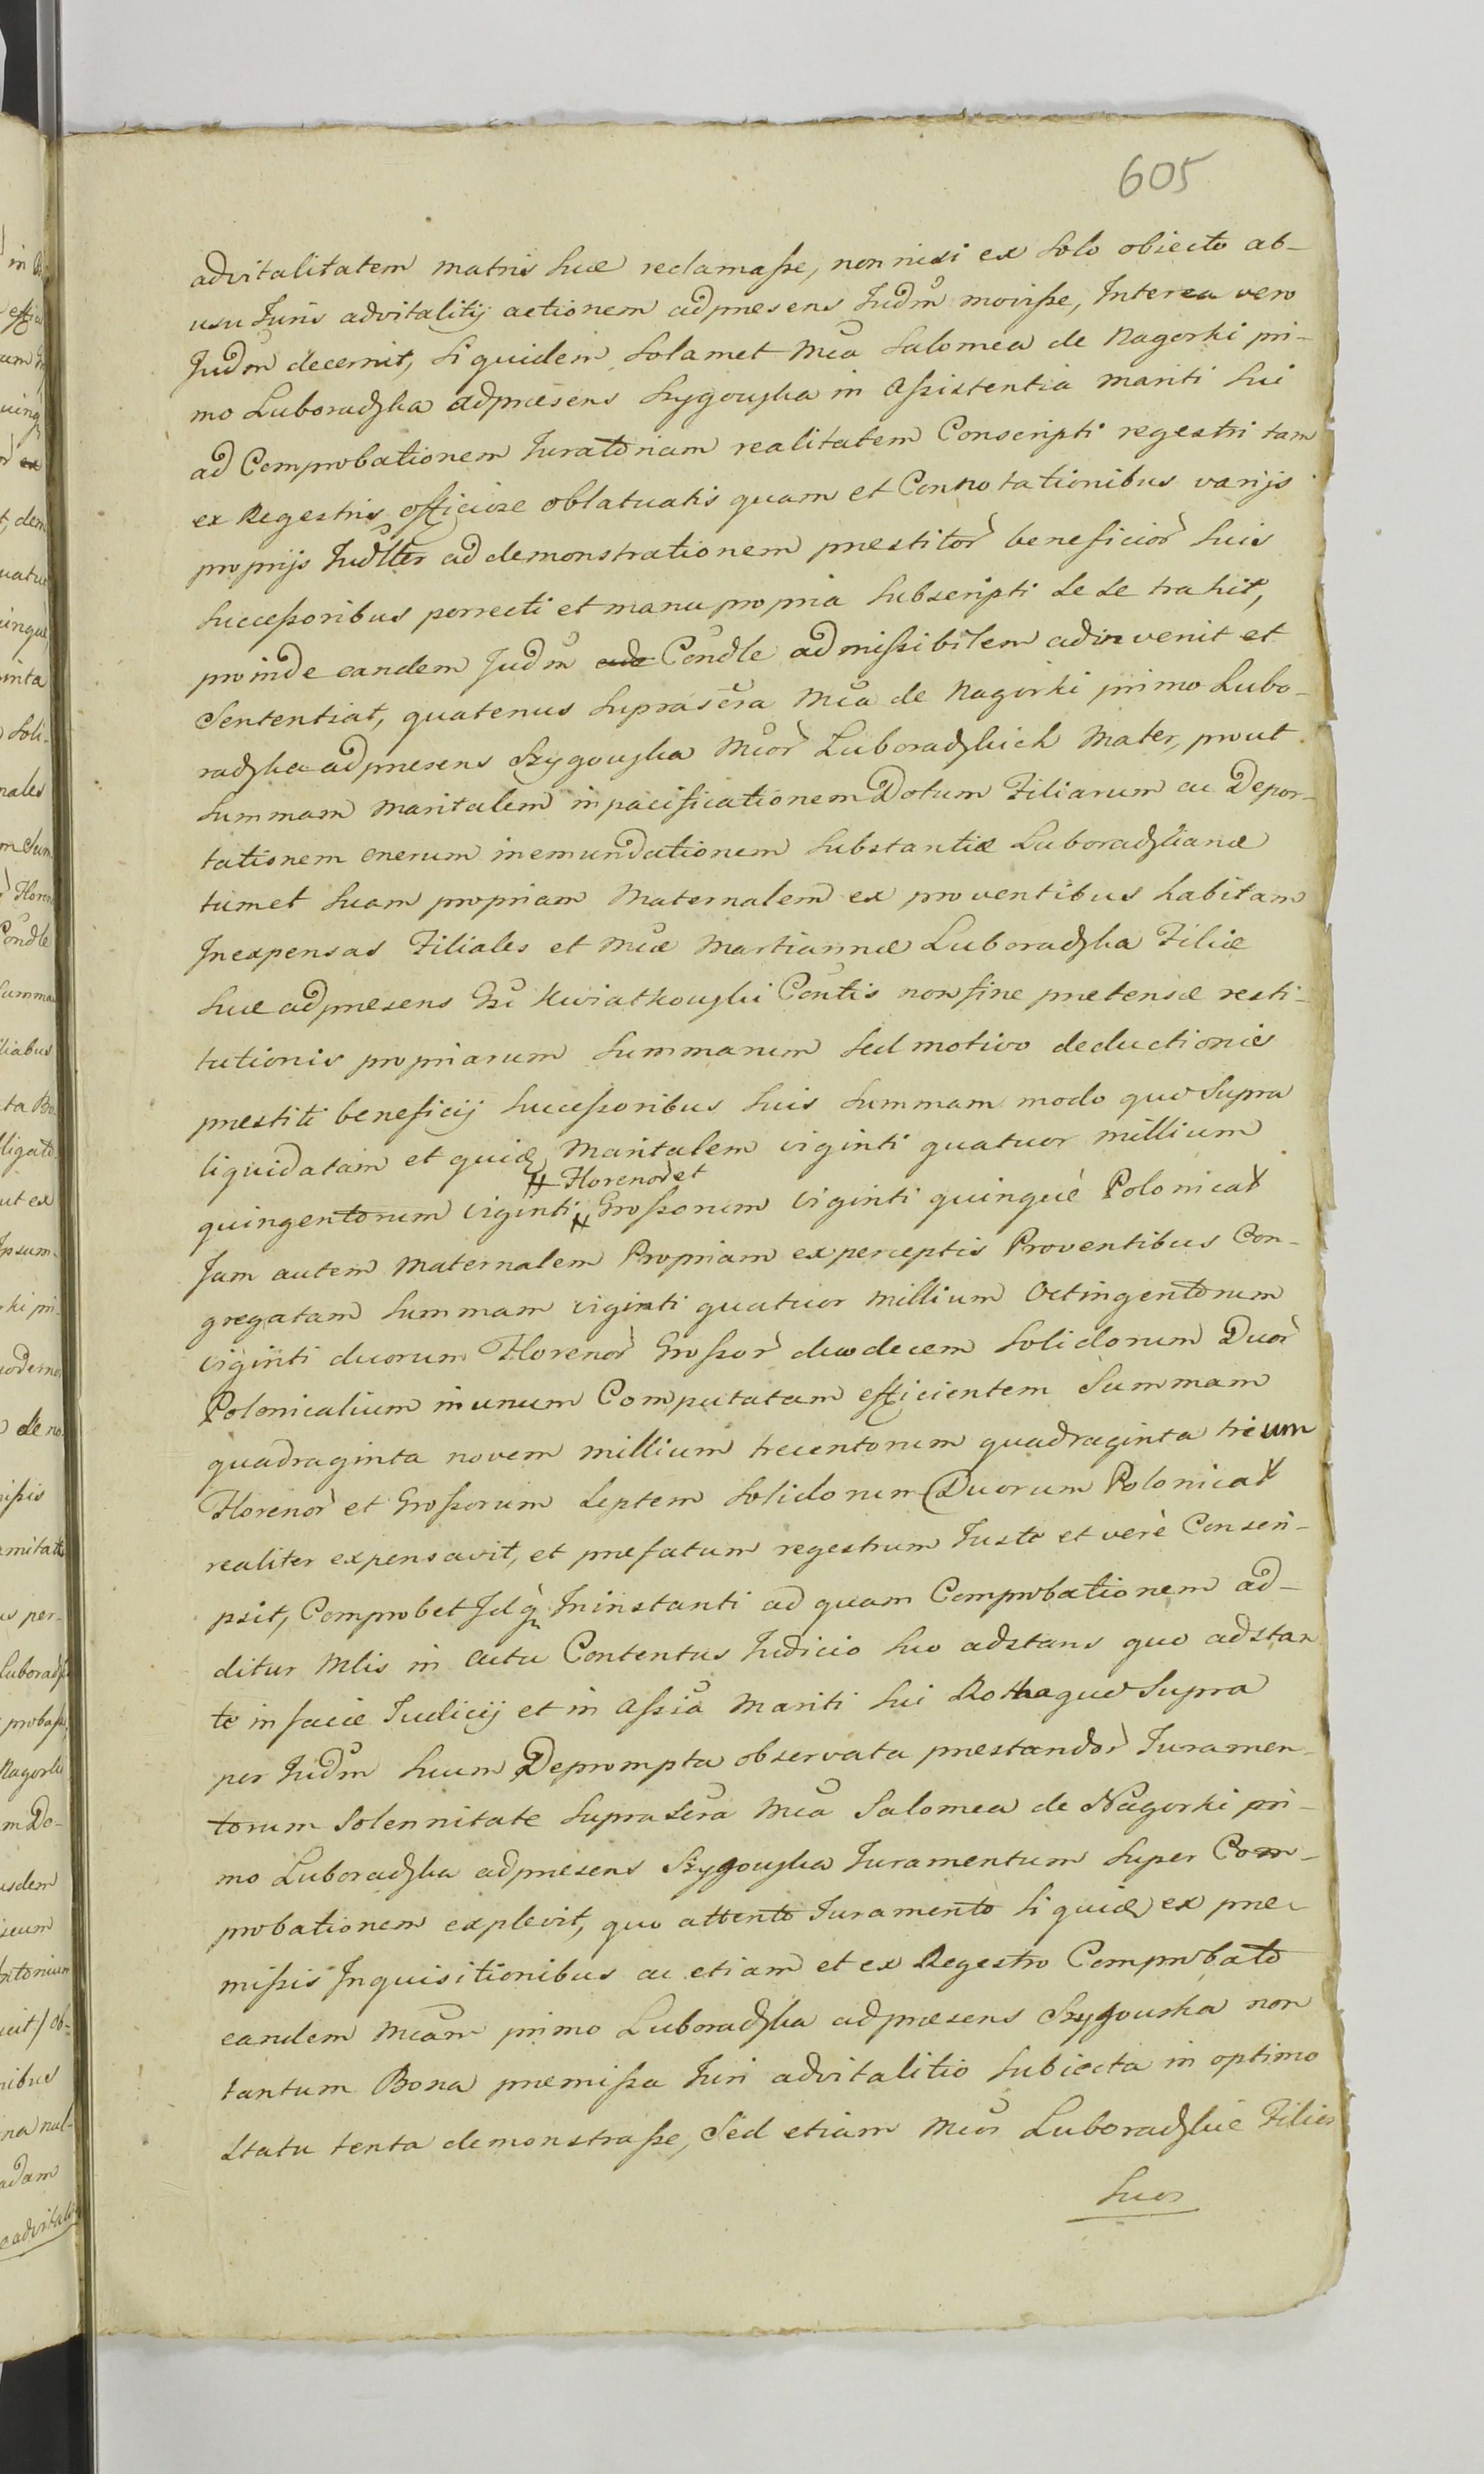 605
advitalitatem matris suæ reclamasse, non nisi ex solo obiecto ab-
usu Juris advitalitij actionem adpræsens Judm movisse, Interea vero
Judm decernit, siquidem solamet Mca Salomea de Nagorki pri-
mo Luboradzka adpræsens Szygowska in Assistentia mariti sui
ad Comprobationem Juratoriam realitatem Conscripti regestri tam
ex Regestris officiose oblatuatis quam et Connotationibus varijs
proprijs Judlter ad demonstrationem præstitor beneficior suis
successoribus porrecti et manu propria subscripti se se trahit,
proinde eandem Judm Condle admissibilem adinvenit et
Sententiat, quatenus suprascra Mca de Nagorki primo Lubo-
radzka adpræsens Szygowska Mcor Luboradzkich Mater, prout
summam maritalem in pacificationem Dotum Filiarum ac Depor-
tationem onerum in emundationem substantiæ Luboradzkianæ
tumet suam propriam Maternalem ex proventibus habitam
In expensas Filiales et Mcæ Martiannæ Luboradzka Filiæ
suæ adpræsens Gsi Kwiatkowski Contis non sine prætensæ resti-
tutionis propriarum summarum sed motivo deductionis
præstiti beneficij successoribus suis summam modo quo supra
liquidatam et quid Maritalem viginti quatuor millium
# Florenor et
quingentorum viginti # Grossorum viginti quinque Polonical
Jam autem Maternalem Propriam ex perceptis Proventibus Con-
gregatam summam viginti quatuor millium Octingentorum
viginti duorum Florenor Grossor duodecem Solidorum Duor
Polonicalium in unum Computatam efficientem Summam
quadraginta novem millium trecentorum quadraginta trium
Florenor et Grossorum septem solidorum Duorum Polonical
realiter expensavit, et præfatum regestrum Juste et verè Conscri-
psit, Comprobet Idq Ininstanti ad quam Comprobationem ad-
ditur Mlis in actu Contentus Judicio suo adstans quo adstan
te in facie Judicij et in Assia Mariti sui Rotha quo Supra
per Judm suum Deprompta observata præstandor Juramen-
torum Solennitate suprascra Mca Salomea de Nagorki pri-
mo Luboradzka adpræsens Szygowska Juramentum super Com-
probationem explevit, quo attento Juramento si quid ex præ-
missis Inquisitionibus ac etiam et ex Regestro Comprobato
eandem Mcam primo Luboradzka adpræsens Szygowska non
tantum Bona præmissa Juri advitalitio subiecta in optimo
statu tenta demonstrasse, Sed etiam Mcos Luboradzkie Filios
suos